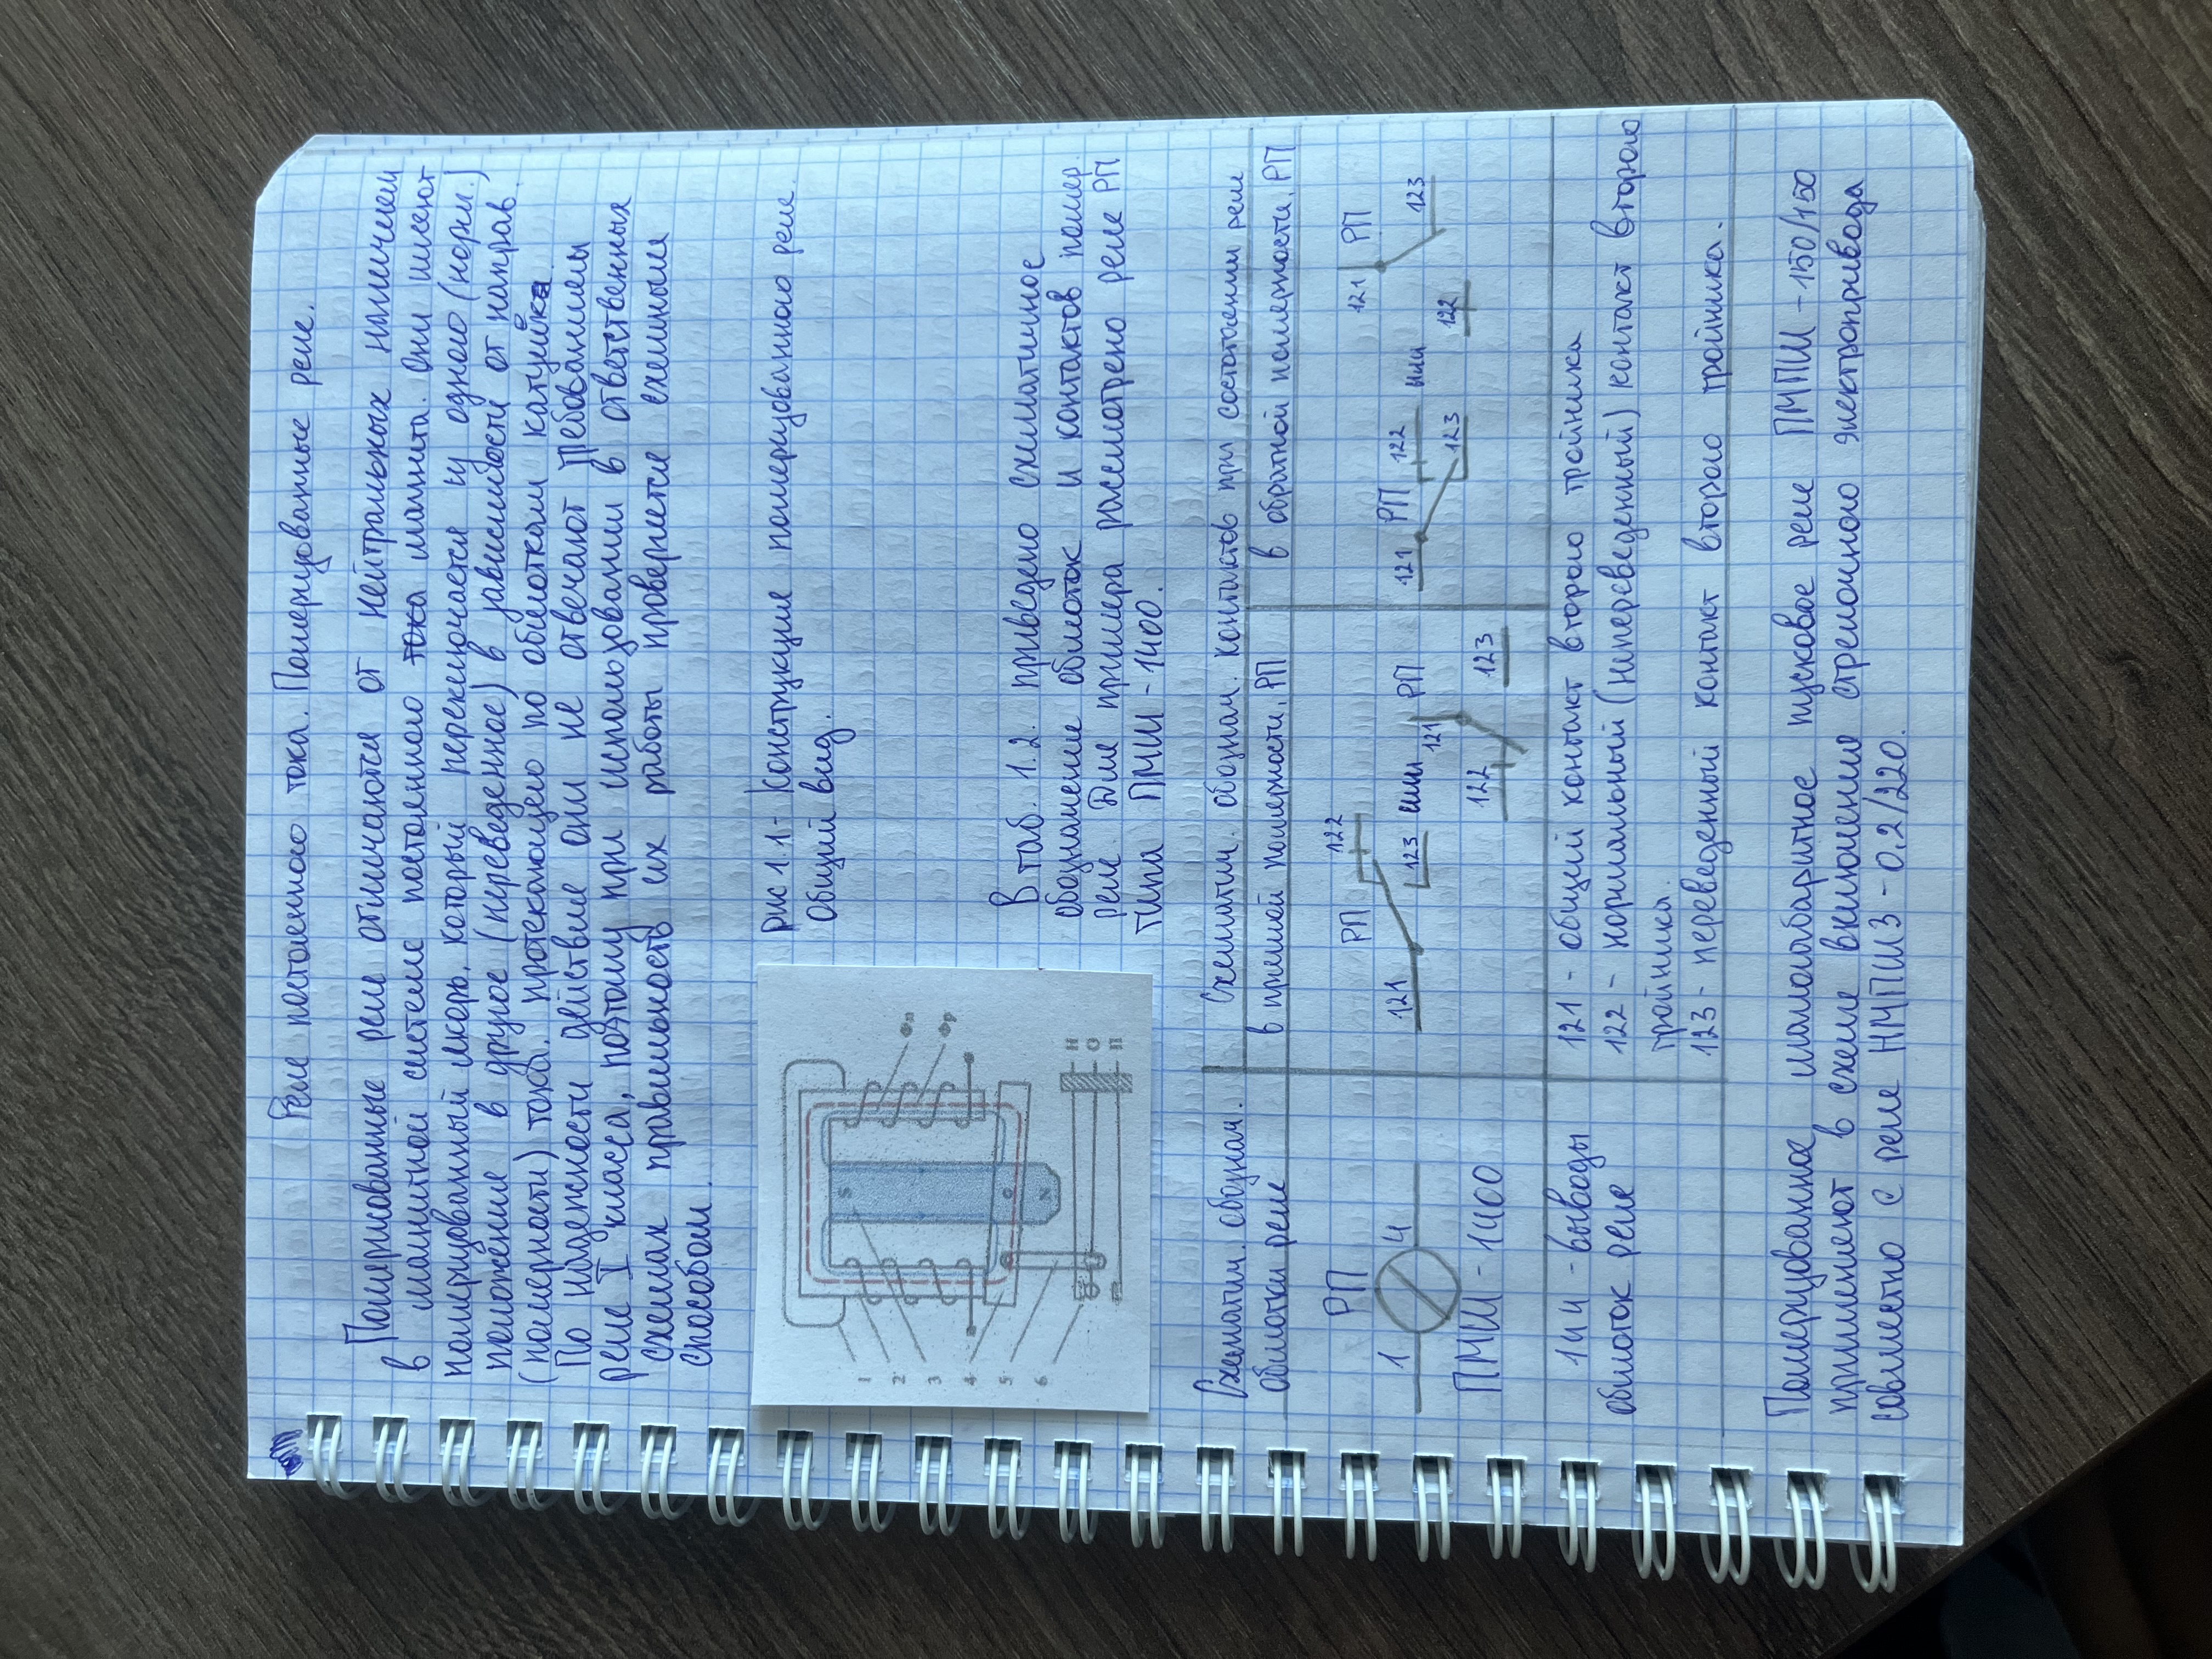 Реле постоянного тока. Поляризованные реле.
Поляризованные реле отличаются от нейтральных наличием
в магнитной системе постоянного тока магнита. Они имеют
поляризованный якорь, который переключается из одного (норм.)
положение в другое (переведенное) в зависимости от направ.
(полярности) тока, протекающего по обмоткам катушек.
По надежности действие они не отвечают требованиям
реле I класса, поэтому при использовании в ответственных
схемах правильность их работы проверяется схемным
способом.
рис 1.1 - Конструкция поляризованного реле.
Общий вид.
1
2
3
4
5
6
S
O
N
Фп
Фр
Н
О
П
В таб. 1.2. приведено схематичное
обозначение обмоток и контактов поляр.
реле. Для примера рассмотрено реле РП
типа ПМШ - 1400.
Схематич. обознач.
обмотки реле
Схематич. обознач. контактов при состоянии реле
в прямой полярности, РП
в обратной полярности, РП
РП
1 4
ПМШ - 1400
121 РП 122
123
или
121 РП
122 123
121 РП 122
123
или
121 РП
122 123
1 и 4 - выводы
обмоток реле
121 - общий контакт второго тройника
122 - нормальный (непереведенный) контакт второго
тройника.
123 - переведенный контакт второго тройника.
Поляризованное малогабаритное пусковое реле ПМПШ - 150/150
применяют в схеме включение стрелочного электропривода
совместно с реле НМПШ3 - 0.2/220.